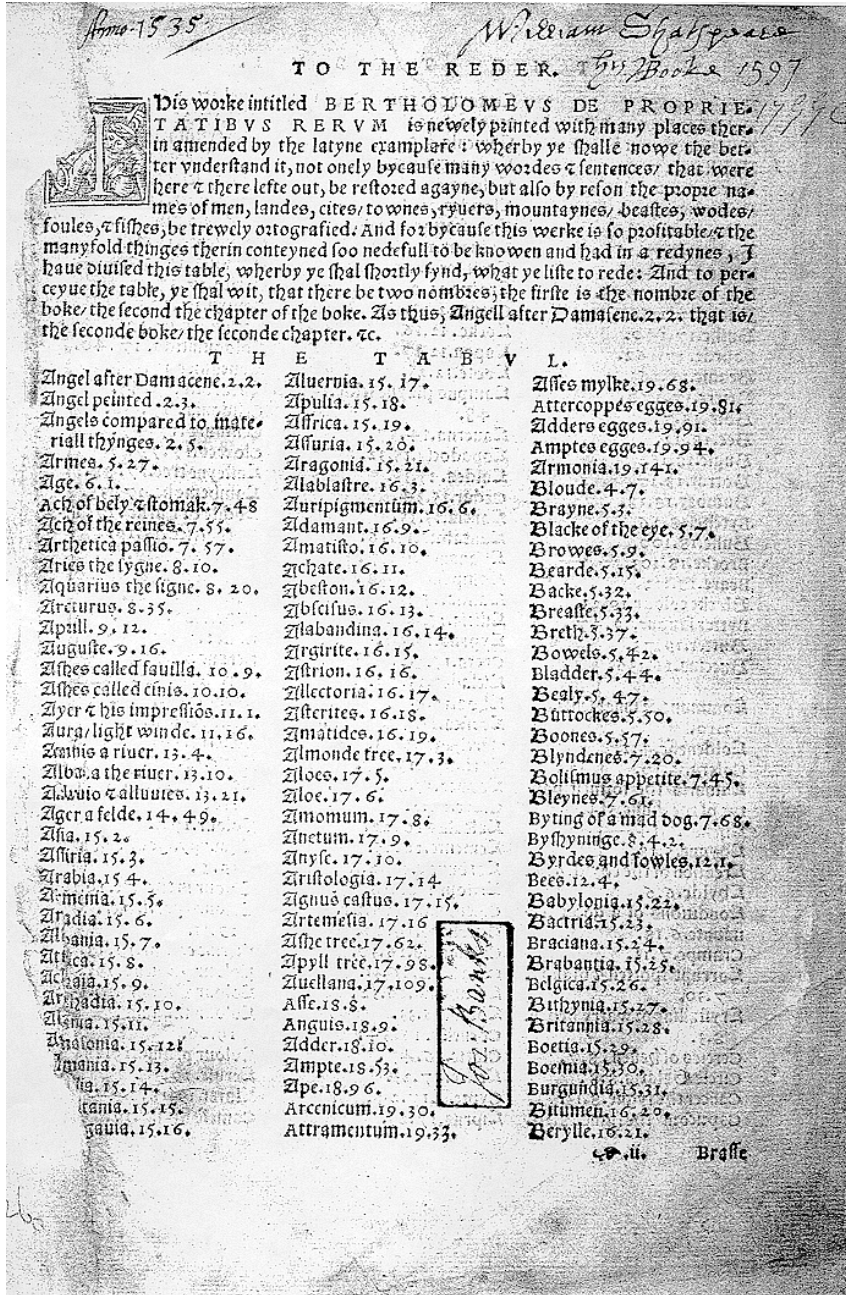 Anno 1535
William Shakspeare
his Booke 1597
TO THE REDER.
THis worke intitled BERTHOLOMEVS DE PROPRIE-
TATIBVS RERVM is newely printed with many places ther-
in amended by the latyne examplare: wherby ye shalle nowe the bet-
ter vnderstand it, not onely bycause many wordes ⁊ sentences/ that were
here ⁊ there lefte out, be restored agayne, but also by reson the propre na-
mes of men, landes, cites/ townes, ryuers, mountaynes/ beastes, wodes/
foules, ⁊ fishes, be trewely ortografied. And for bycause this werke is so profitable/ ⁊ the
manyfold thinges therin conteyned soo nedefull to be knowen and had in a redynes, I
haue diuised this table, wherby ye shal shortly fynd, what ye liste to rede: And to per-
ceyue the table, ye shal wit, that there be two nombres; the firste is the nombre of the
boke/ the second the chapter of the boke. As thus, Angell after Damasene.2.2. that is/
the seconde boke/ the seconde chapter. ⁊c.
THE TABVL.
Angel after Damacene.2.2.
Angel peinted.2.3.
Angels compared to mate-
riall thynges. 2.5.
Armes.5.27.
Age.6.1.
Ach of bely ⁊ stomak.7.48
Ach of the reines.7.55.
Arthetica passio.7.57.
Aries the sygne.8.10.
Aquarius the signe. 8. 20.
Arcturus.8.35.
Aprill.9.12.
Auguste.9.16.
Ashes called fauilla. 10.9.
Ashes called cinis.10.10.
Ayer ⁊ his impressiōs.11.1.
Aura/ light winde. 11.16.
a riuer. 13.4.
Albana the riuer. 13.10.
⁊ alluuies. 13.21.
Ager a felde. 14.49.
Asia.15.2.
Assiria.15.3.
Arabia.15 4.
Armenia.15.5.
Aradia.15.6.
Albania.15.7.
Attica.15.8.
Achaia.15.9.
Archadia.15.10.
15.11.
15.12.
15.13.
15.14.
15.15.
15.16.
Aluernia.15.17.
Apulia.15.18.
Affrica.15.19.
Assuria.15.20.
Aragonia.15.21.
Alablastre.16.3.
Auripigmentum.16.6.
Adamant.16.9.
Amatisto.16.10.
Achate.16.11.
Abeston.16.12.
Abscisus.16.13.
Alabandina.16.14.
Argirite.16.15.
Astrion.16.16.
Allectoria.16.17.
Asterites.16.18.
Amatides.16.19.
Almonde tree.17.3.
Aloes.17.5.
Aloe.17.6.
Amomum.17.8.
Anetum.17.9.
Anyse.17.10.
Aristologia.17.14
Agnus castus.17.15.
Artemesia.17.16
Ashe tree.17.62.
Apyll tree.17.98.
Auellana.17.109.
Asse.18.8.
Anguis.18.9.
Adder.18.10.
Ampte.18.53.
Ape.18.96.
Arcenicum.19.30.
Attramentum.19.33.
Jos: Banks
Asses mylke.19.68.
Attercoppes egges.19.81.
Adders egges.19.91.
Amptes egges.19.94.
Armonia.19.141.
Bloude.4.7.
Brayne.5.3.
Blacke of the eye.5.7.
Browes.5.9.
Bearde.5.15.
Backe.5.32.
Breaste.5.33.
Breth.5.37.
Bowels.5.42.
Bladder.5.44.
Bealy.5.47.
Buttockes.5.50.
Boones.5.57.
Blyndenes.7.20.
Bolismus appetite.7.45.
Bleynes.7.61.
Byting of a mad dog.7.68.
Byshyninge.8.4.2.
Byrdes and fowles.12.1.
Bees.12.4.
Babylonia.15.22.
Bactria.15.23.
Braciana.15.24.
Brabantia.15.25.
Belgica.15.26.
Bithynia.15.27.
Britannia.15.28.
Boetia.15.29.
Boemia.15.30.
Burgundia.15.31.
Bitumen.16.20.
Berylle.16.21.
.ii. Brasse